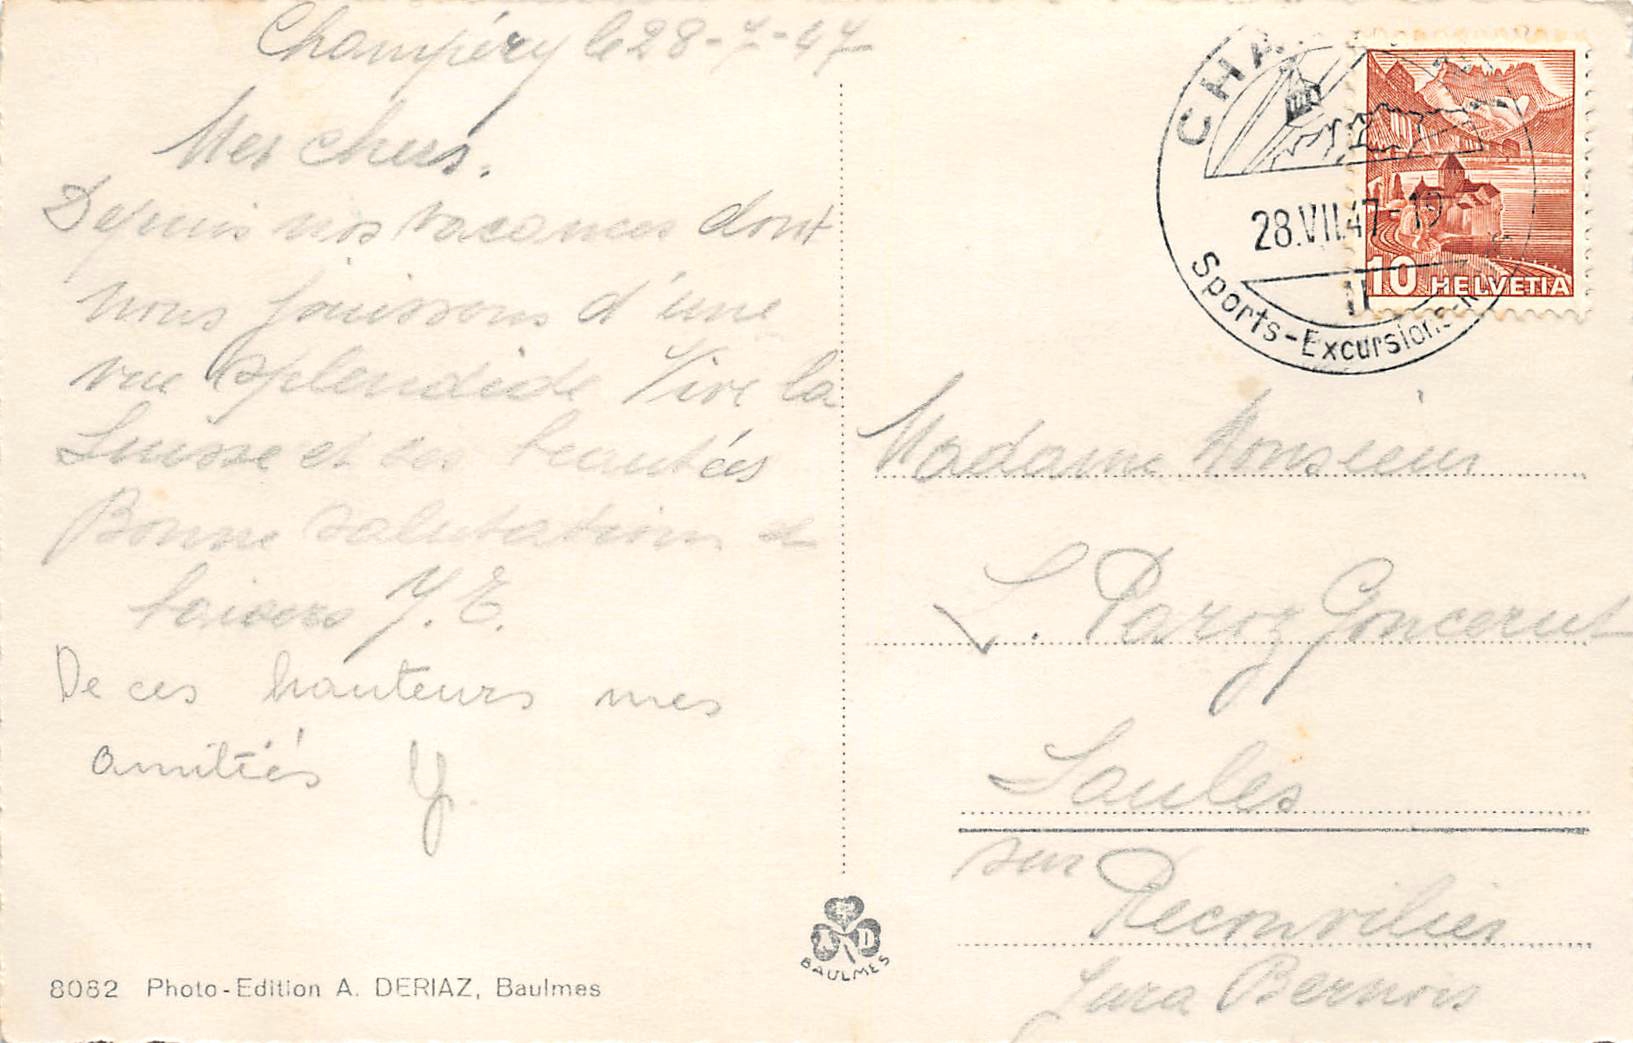 Champéry le 28-7-47
Mes chers.
Depuis nos vacances dont
nous jouissons d'une
vue splendide Vive la
Suisse et ses beautées
Bonne salutations et
baisers Y. E.
De ces hauteurs mes
amitiés Y.
8082 Photo-Edition A. DERIAZ, Baulmes
A D
BAULMES
CHA
28.VII.47-19
Sports-Excursions
10 HELVETIA
Madame Monsieur
L. Paroz Goncerut
Saules
sur
Reconvilier
Jura Bernois